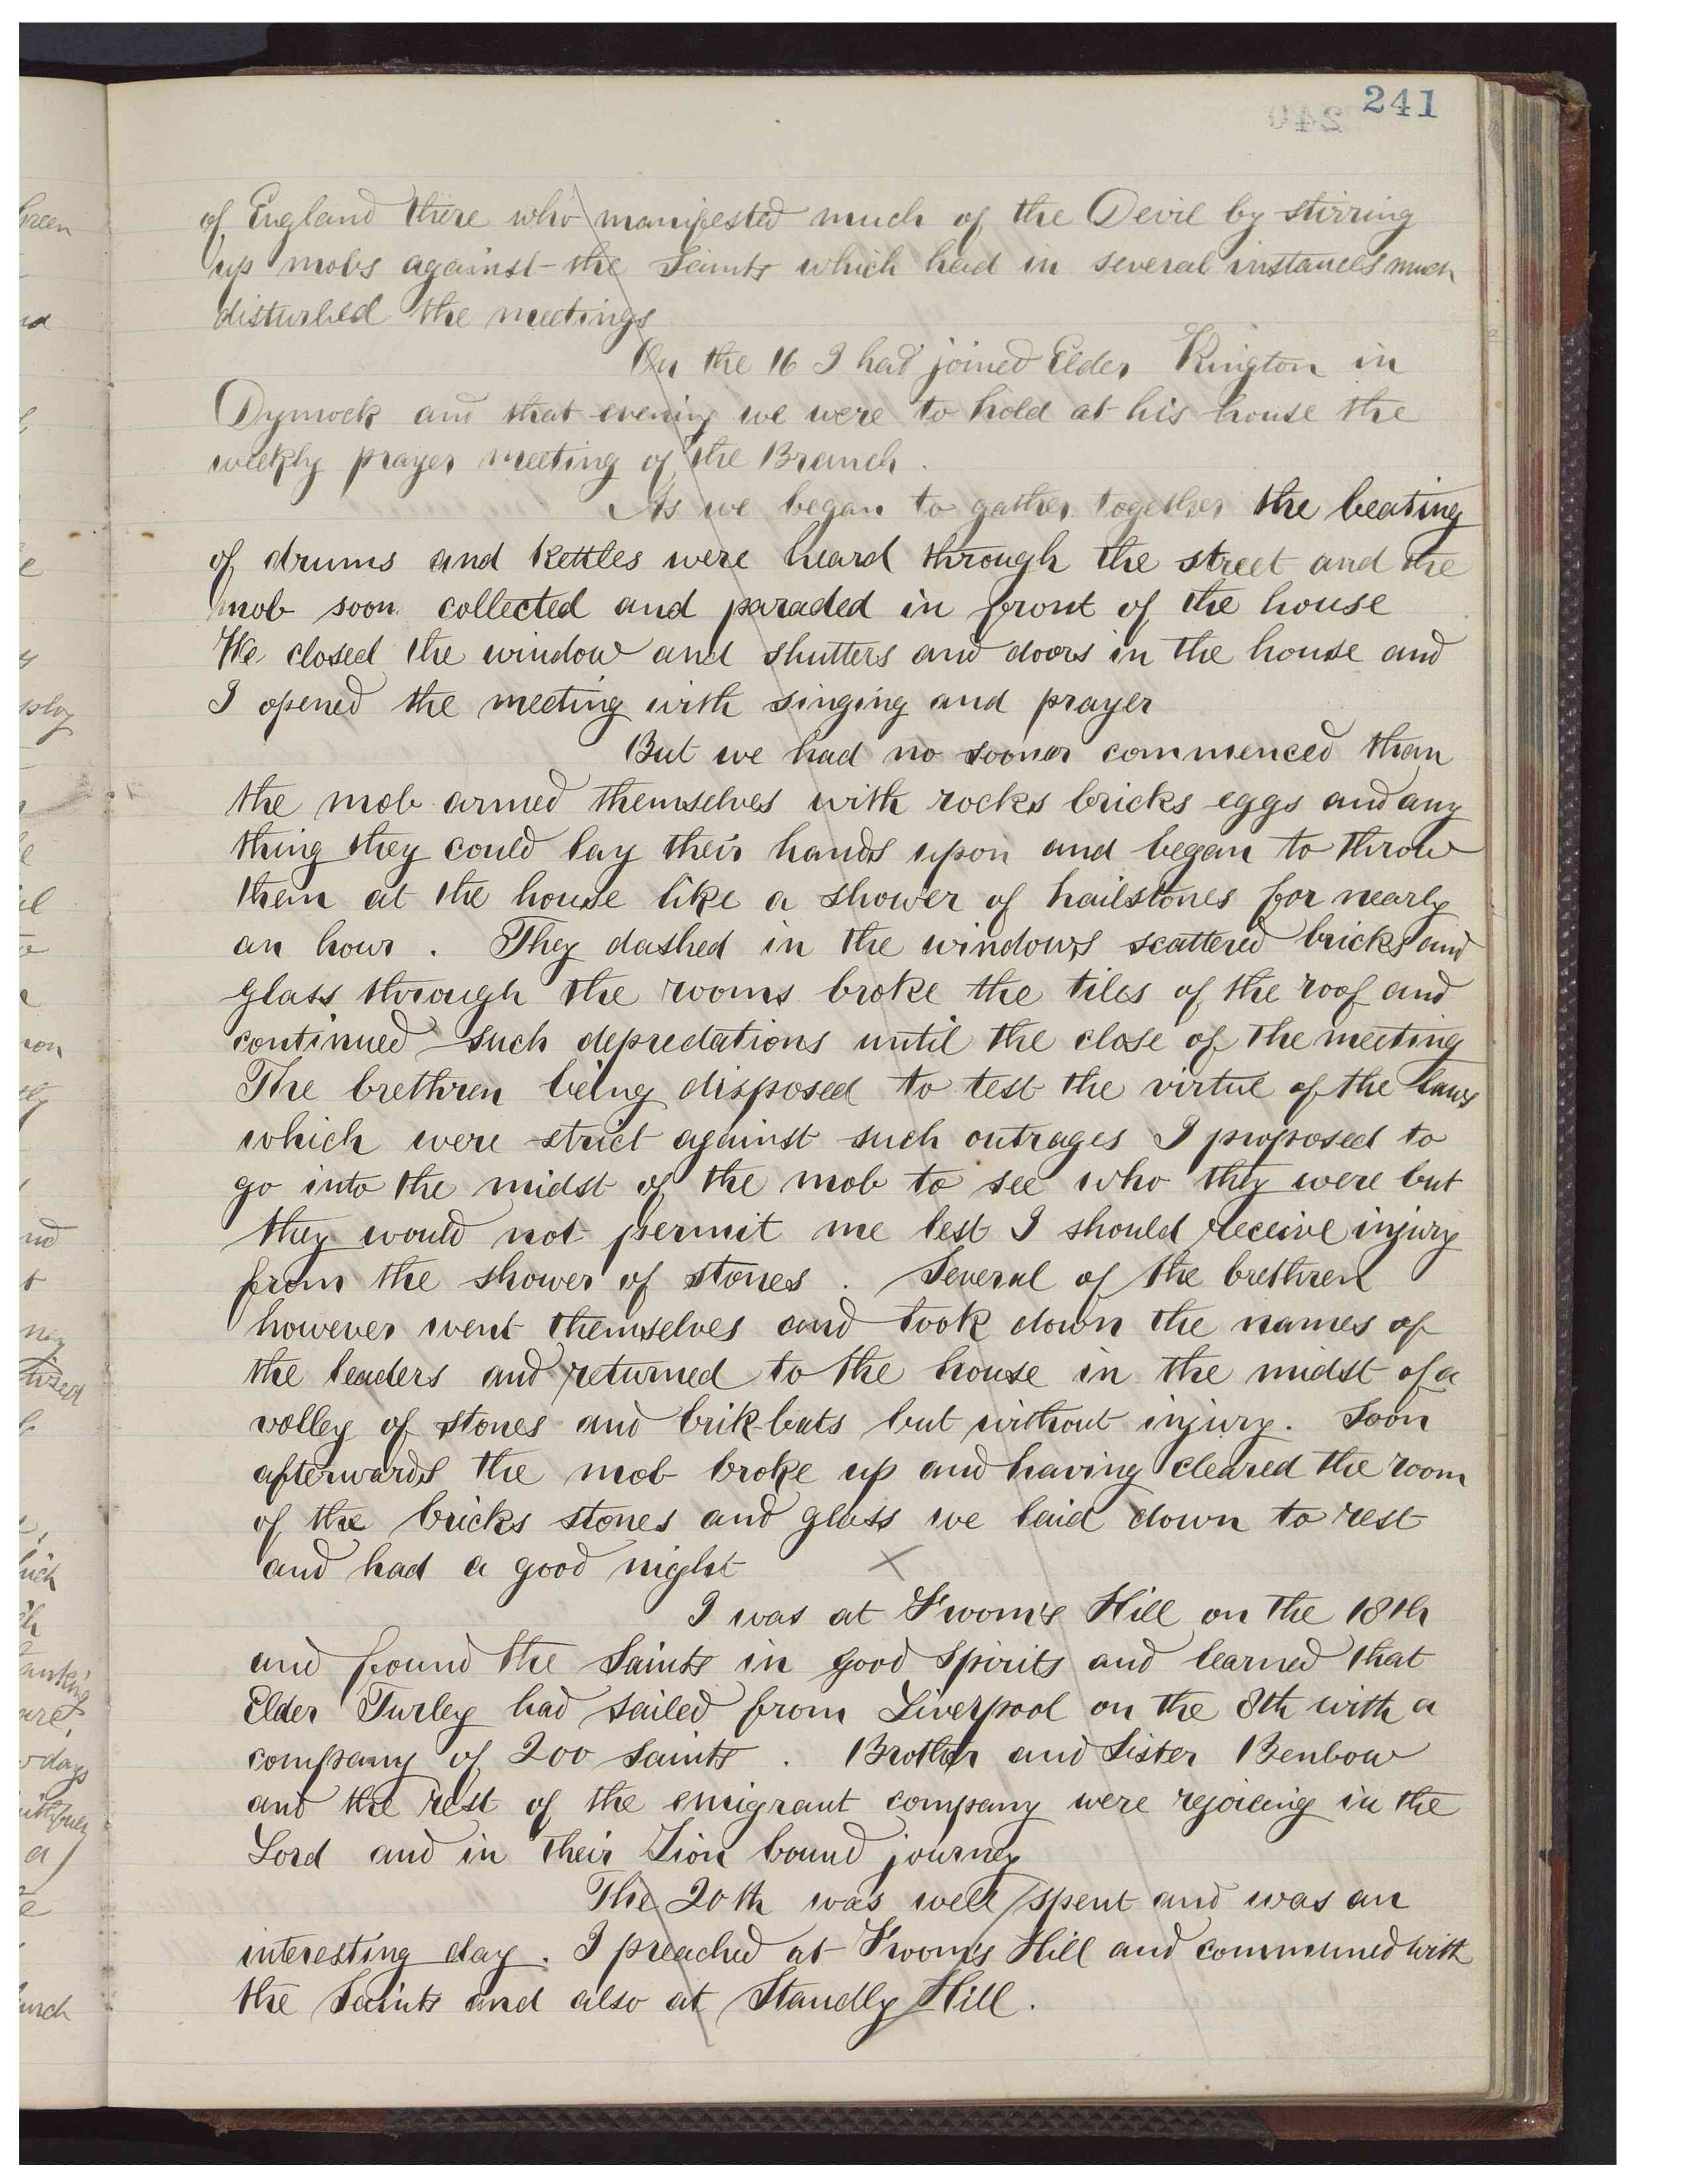 241
240
of England there who manifested much of the Devil by stirring
up mobs against the Saints which had in several instances much
disturbed the meetings
On the 16 I had joined Elder Kington in
Dymock and that evening we were to hold at his house the
weekly prayer meeting of the Branch.
As we began to gather together the beating
of drums and kettles were heard through the street and the
mob soon collected and paraded in front of the house
We closed the window and shutters and doors in the house and
I opened the meeting with singing and prayer
But we had no sooner commenced than
the mob armed themselves with rocks bricks eggs and any
thing they could lay their hands upon and began to throw
them at the house like a shower of hailstones for nearly
an hour. They dashed in the windows scattered bricks and
glass through the rooms broke the tiles of the roof and
continued such depredations until the close of the meeting
The brethren being disposed to test the virtue of the laws
which were strict against such outrages I proposed to
go into the midst of the mob to see who they were but
they would not permit me lest I should receive injury
from the shower of stones. Several of the brethren
however went themselves and took down the names of
the leaders and returned to the house in the midst of a
volley of stones and brik-bats but without injury. Soon
afterwards the mob broke up and having cleared the room
of the bricks stones and glass we laid down to rest
and had a good night X
I was at Froom's Hill on the 18th
and found the Saints in good spirits and learned that
Elder Turley had sailed from Liverpool on the 8th with a
company of 200 Saints. Brother and Sister Benbow
and the rest of the emigrant company were rejoicing in the
Lord and in their Zion bound journey
The 20th was well spent and was an
interesting day. I preached at Froom's Hill and communed with
the Saints and also at Standly Hill.